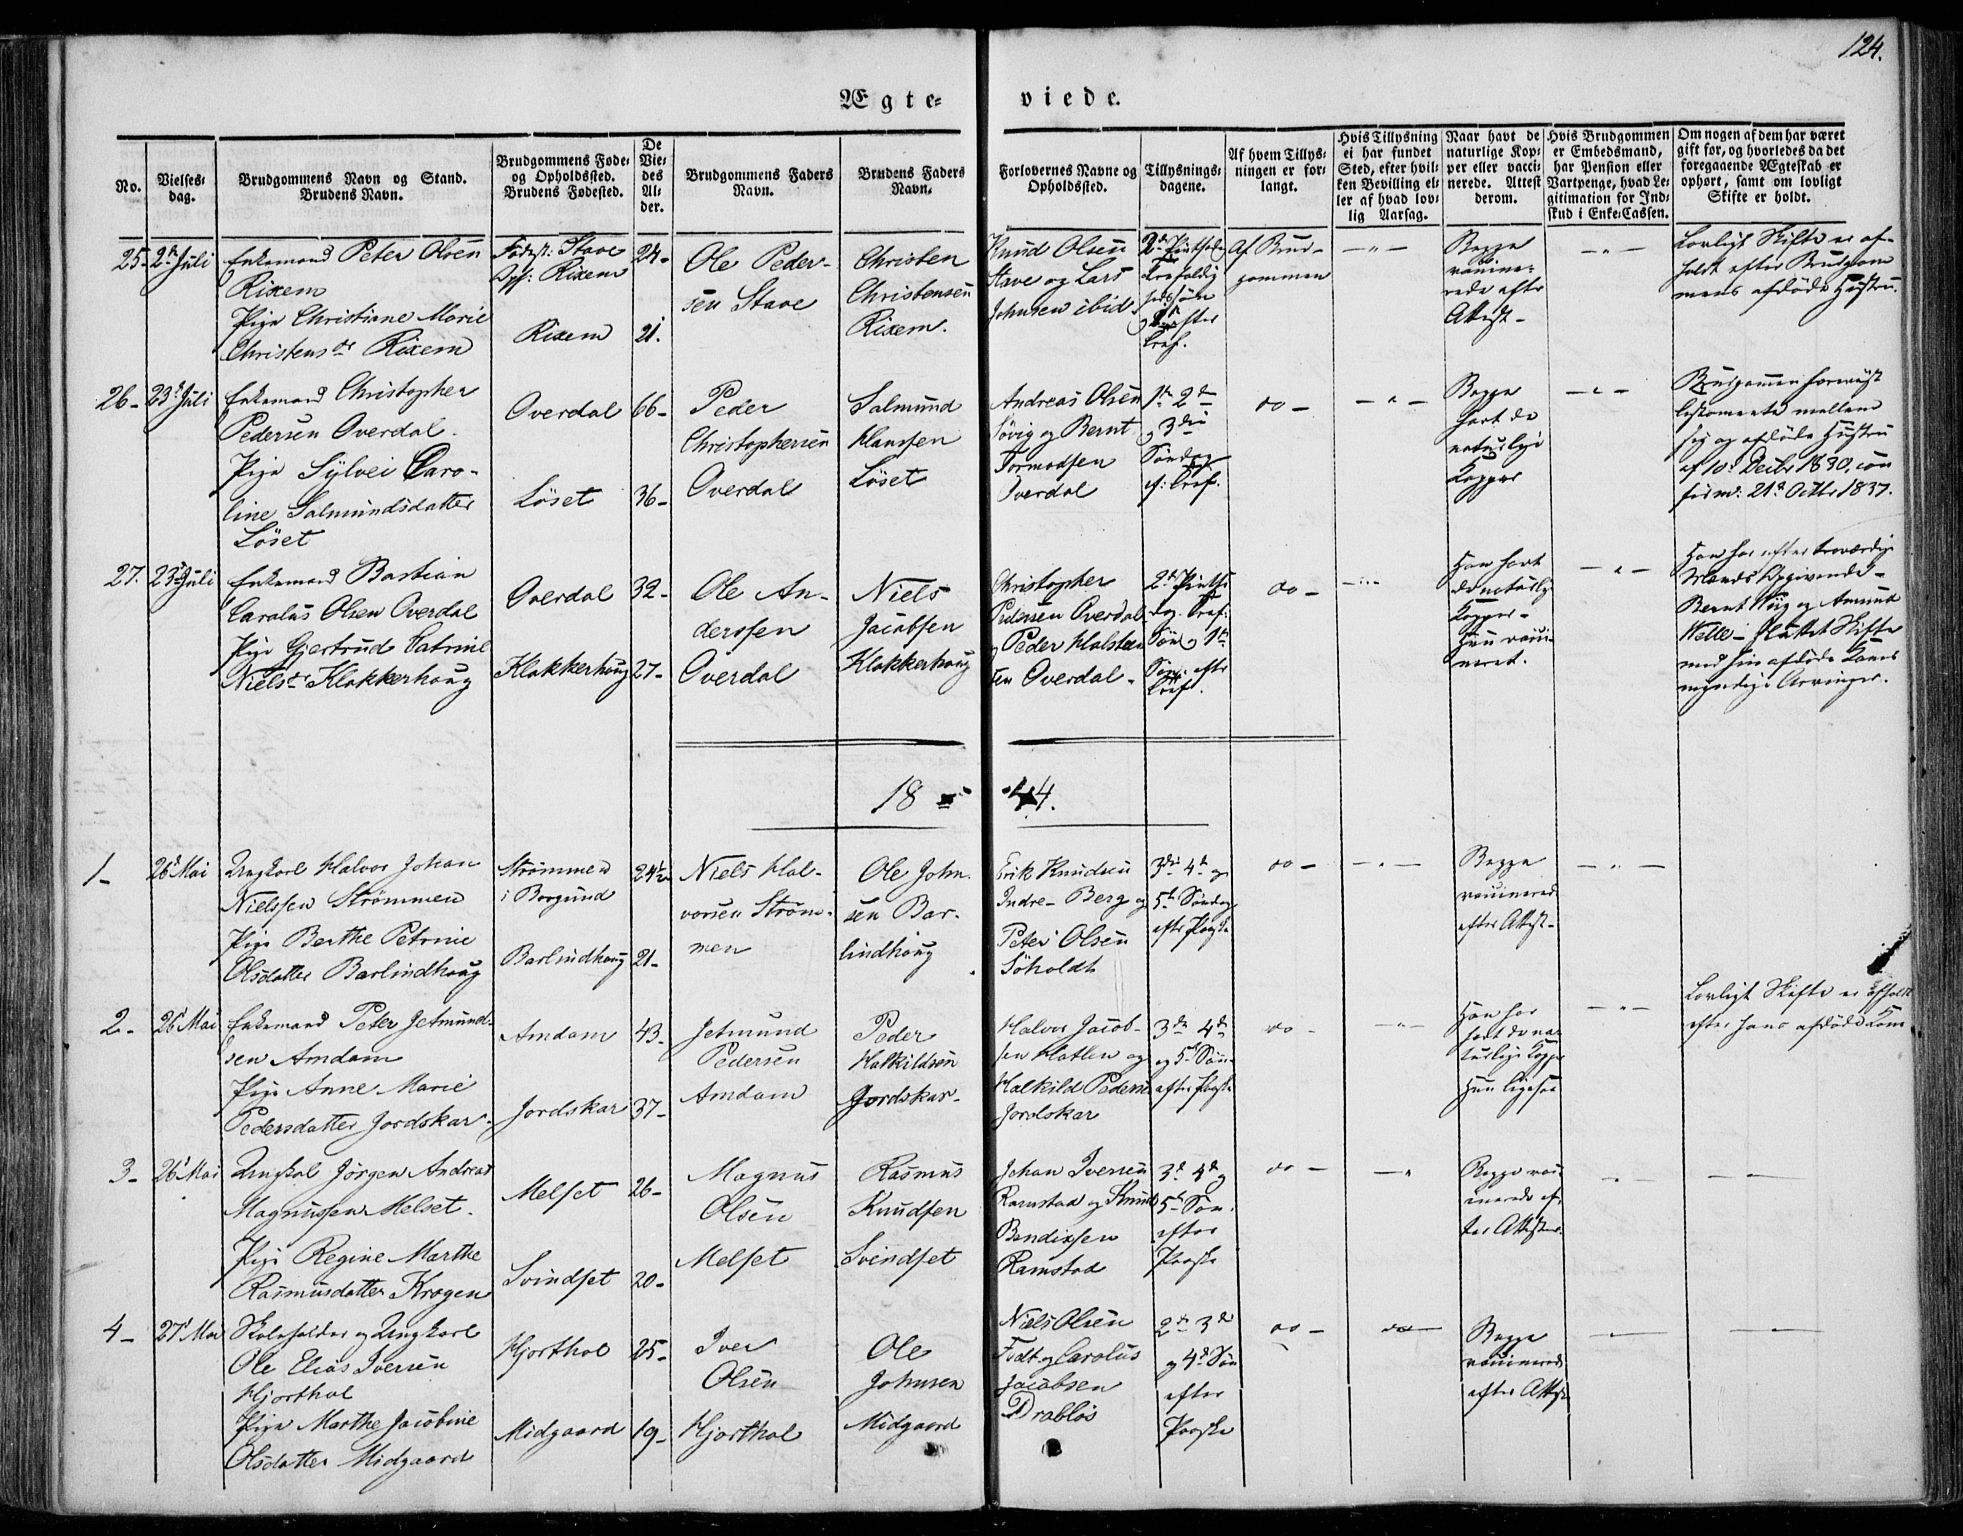 124.
Ægte-
viede.
No.
Vielses-
dag.
Brudgommens Navn og Stand.
Brudens Navn.
Brudgommens Føde-
og Opholdssted.
Brudens Fødested.
De
Vie-
des
Al-
der.
Brudgommens Faders
Navn.
Brudens Faders
Navn.
Forlovernes Navne og
Opholdssted.
Tillysnings-
dagene.
Af hvem Tillys-
ningen er for-
langt.
Hvis Tillysning
ei har fundet
Sted, efter hvil-
ken Bevilling el-
ler af hvad lov-
lig Aarsag.
Naar havt de
naturlige Kop-
per eller vacci-
nerede. Attest
derom.
Hvis Brudgommen
er Embedsmand,
har Pension eller
Vartpenge, hvad Le-
gitimation for Ind-
skud i Enke-Cassen.
Om nogen af dem har været
gift før, og hvorledes da det
foregaaende Ægteskab er
ophørt, samt om lovligt
Skifte er holdt.
25- 2den Juli
Enkemand Peter Olsen
Rixem
Pige Christiane Marie
Christensdr Rixem
Fødest: Stave
Rixem
Rixem
24-
21.
Ole Peder-
sen Stave
Christen
Christensen
Rixem.
Knud Olsen
Stave og Lars
Johnsen ibid.
Af Brud-
gommen
Begge
vaccine-
rede efter
Attest-
Lovligt Skifte er af-
holdt efter Brudgom
mens afdøde Hustru.
26- 23d Juli
Enkemand Christopher
Pedersen Overdal.
Pige Sylvei Caro-
line Salmundsdatter
Løset
Overdal
Løset
66-
36-
Peder
Christophersen
Overdal
Salmund
Hanssen
Løset
Andreas Olsen
Søvig og Bernt
Tormodsen
Overdal
1ste 2de
og 3die
Søndag
e. Tref.
do -
Begge
havt de
naturlige
Kopper
Brudgommen foreviist
Testamente mellem
sig og afdøde Hustru
af 10de Decbr 1830, con
firm: 21de Octbr 1837.
27. 23d Juli
Enkemand Bastian
Carolus Olsen Overdal
Pige Gjertrud Catrine
Nielsdr Klokkerhoug
Overdal
Klokkerhoug
32-
27-
Ole An-
derssen
Overdal
Niels
Jacobsen
Klokkerhoug
Christopher
Pedersen Overdal
og Peder Halsteen
sen Overdal -
do -
Han havt
de naturlige
Kopper -
Hun vacci-
neret.
Han har efter troværdige
Mænds Opgivende -
Bernt Søvig og Amund
Welle - sluttet Skifte
med sin afdøde Kones
myndige Arvinger.
18 44.
1- 26d Mai
Ungkarl Halvor Johan
Nielssen Strømmen
Pige Berthe Petrine
Olsdatter Barlindhoug
Strømmen
i Borgund
Barlindhoug
24½
21-
Niels Hal-
vorsen Strøm-
men
Ole John-
sen Bar-
lindhoug
Erik Knudsen
Indre- Berg og
Peter Olsen
Søholdt
3die 4de og
5te Søndag
efter Paaske
do -
Begge
vaccinered
efter Attest-
2- 26d Mai
Enkemand Peter Jetmund-
sen Amdam
Pige Anne Marie
Pedersdatter Jordskar-
Amdam
Jordskar
43-
37-
Jetmund
Pedersen
Amdam
Peder
Halkildsen
Jordskar-
Halvor Jacob-
sen Hatlen og
Halkild Pedersen
Jordskar
3die 4de
og 5te Sønd
efter Paaske
do -
Han har
havt de na-
turlige Kopper
Hun ligesaa
Lovligt Skifte er afholdt
efter hans afdøde Kone
3- 26d Mai
Ungkarl Jørgen Andreas
Magnussen Melset.
Pige Regine Marthe
Rasmusdatter Krogen
Melset
Svindset
26-
20-
Magnus
Olsen
Melset
Rasmus
Knudsen
Svindset
Johan Iversen
Ramstad og Knud
Bendixsen
Ramstad
3die 4de og
5te Søn.
efter
Paaske
do -
Begge vac-
cinerede ef-
ter Attester.
4- 27d Mai
Skoleholder og Ungkarl
Ole Elias Iversen
Hjorthol
Pige Marthe Jacobine
Olsdatter Midgaard
Hjorthol
Midgaard
25-
19-
Iver
Olsen
Hjorthol
Ole
Johnsen
Midgaard
Niels Olsen
Tødt og Carolus
Jacobsen
Drabløs
2den 3die
og 4de Søn
efter
Paaske
do -
do
Begge
vaccinered
efter Attest